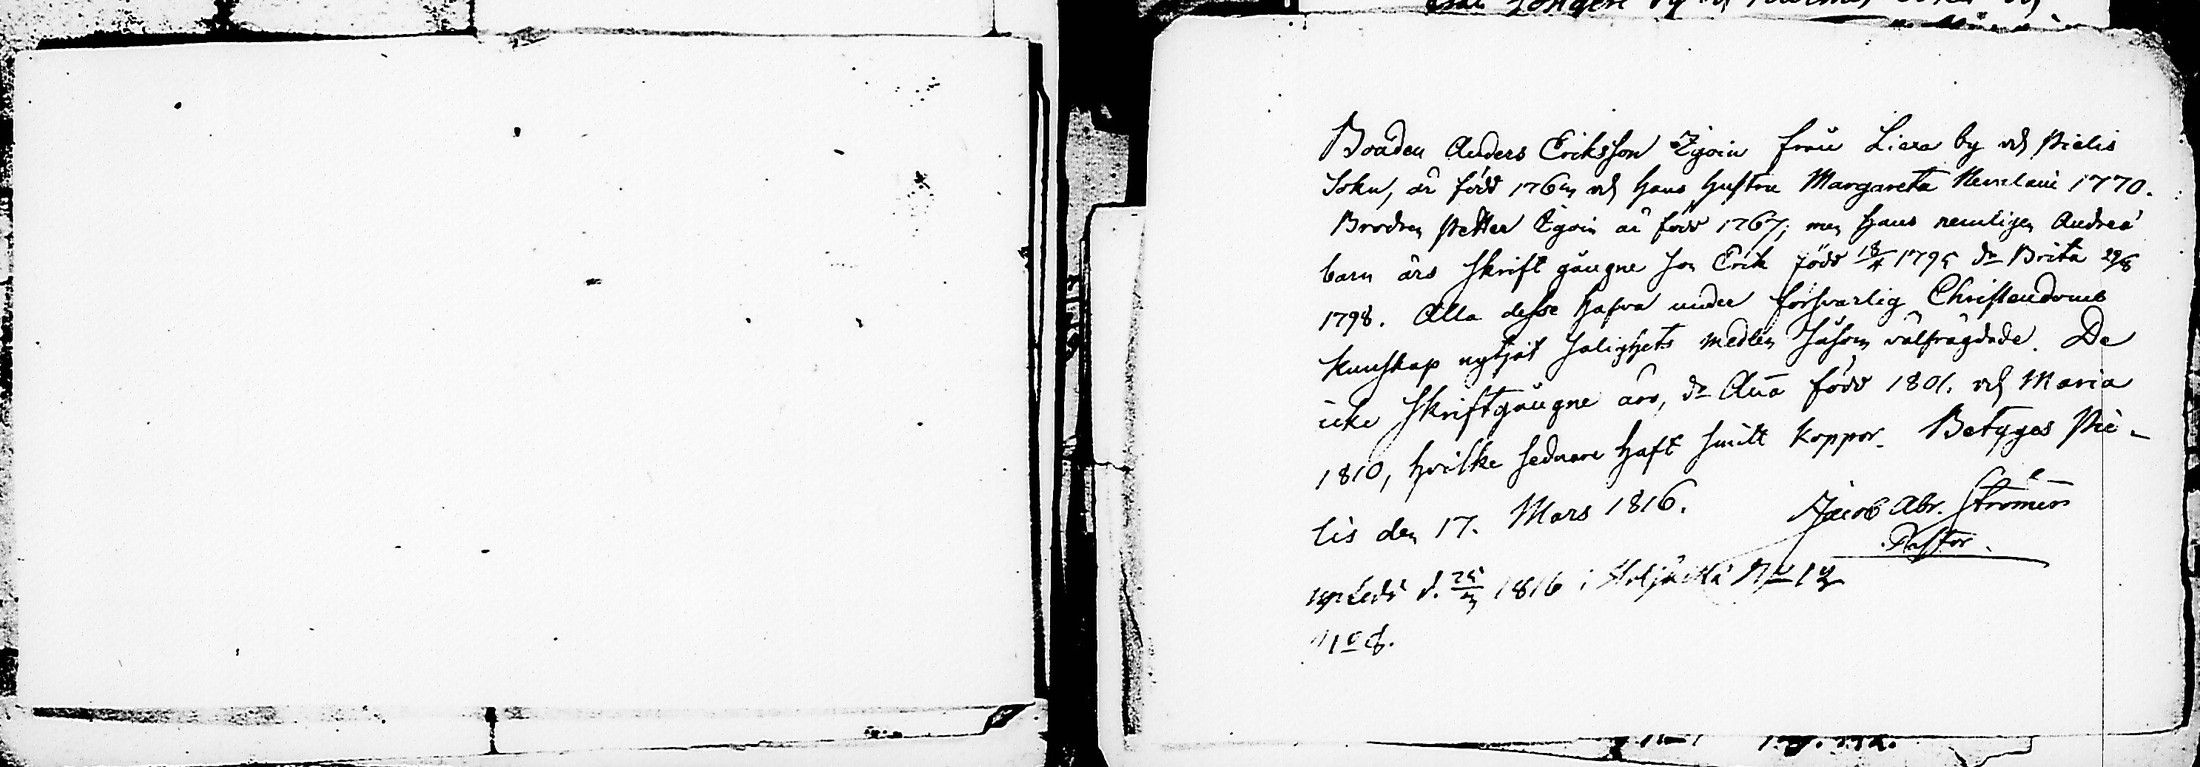 Bonden Anders Eriksson Egoin från Liexa by och Pielis
Sokn, är född 176 och hans hustru Margareta 1770.
Brodren Petter Egoin är född 1767; men hans nemligen Andreæ
barn äro skriftgångne son Erik född 18/4 1795 dr Brita 29/8
1798. Alla desse hafva under försvarlig Christendoms
kunskap nytjat salighets medlen såsom välfrägdade. De
icke skriftgångne äro, dr Aña född 1801. och Maria
1810, hvilke sednare haft koppor. Betyges Pie-
lis den 17. Mars 1816. Jacob Abr. Stromér
Pastor.
d. 1816 i